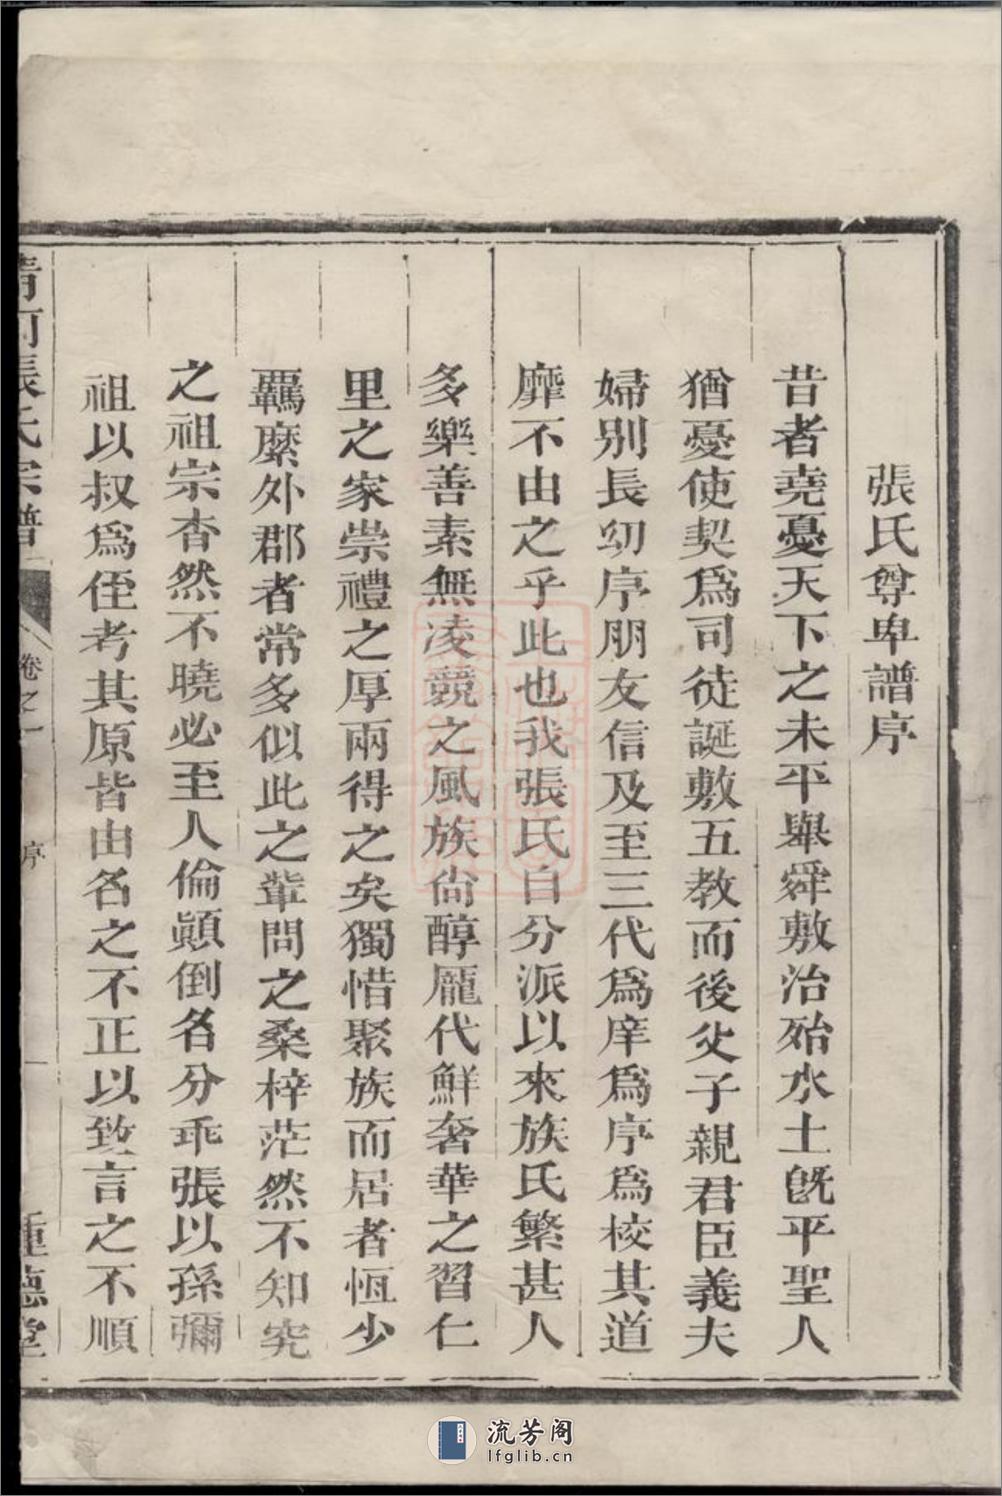 張氏尊卑譜序
昔者堯憂天下之未平舉舜敷治殆水土旣平聖人
猶憂使契爲司徒誕敷五教而後父子親君臣義夫
婦別長幼序朋友信及至三代爲庠爲序爲校其道
靡不由之乎此也我張氏自分派以來族氏繁甚人
多樂善素無凌競之風族尙醇龐代鮮奢華之習仁
里之家崇禮之厚兩得之矣獨惜聚族而居者恆少
羈縻外郡者常多似此之輩問之桑梓茫然不知究
之祖宗杳然不曉必至人倫顚倒名分乖張以孫彌
祖以叔爲侄考其原皆由名之不正以致言之不順
清河張氏宗譜 卷之一 序 一 種德堂
流芳阁
lfglib.cn